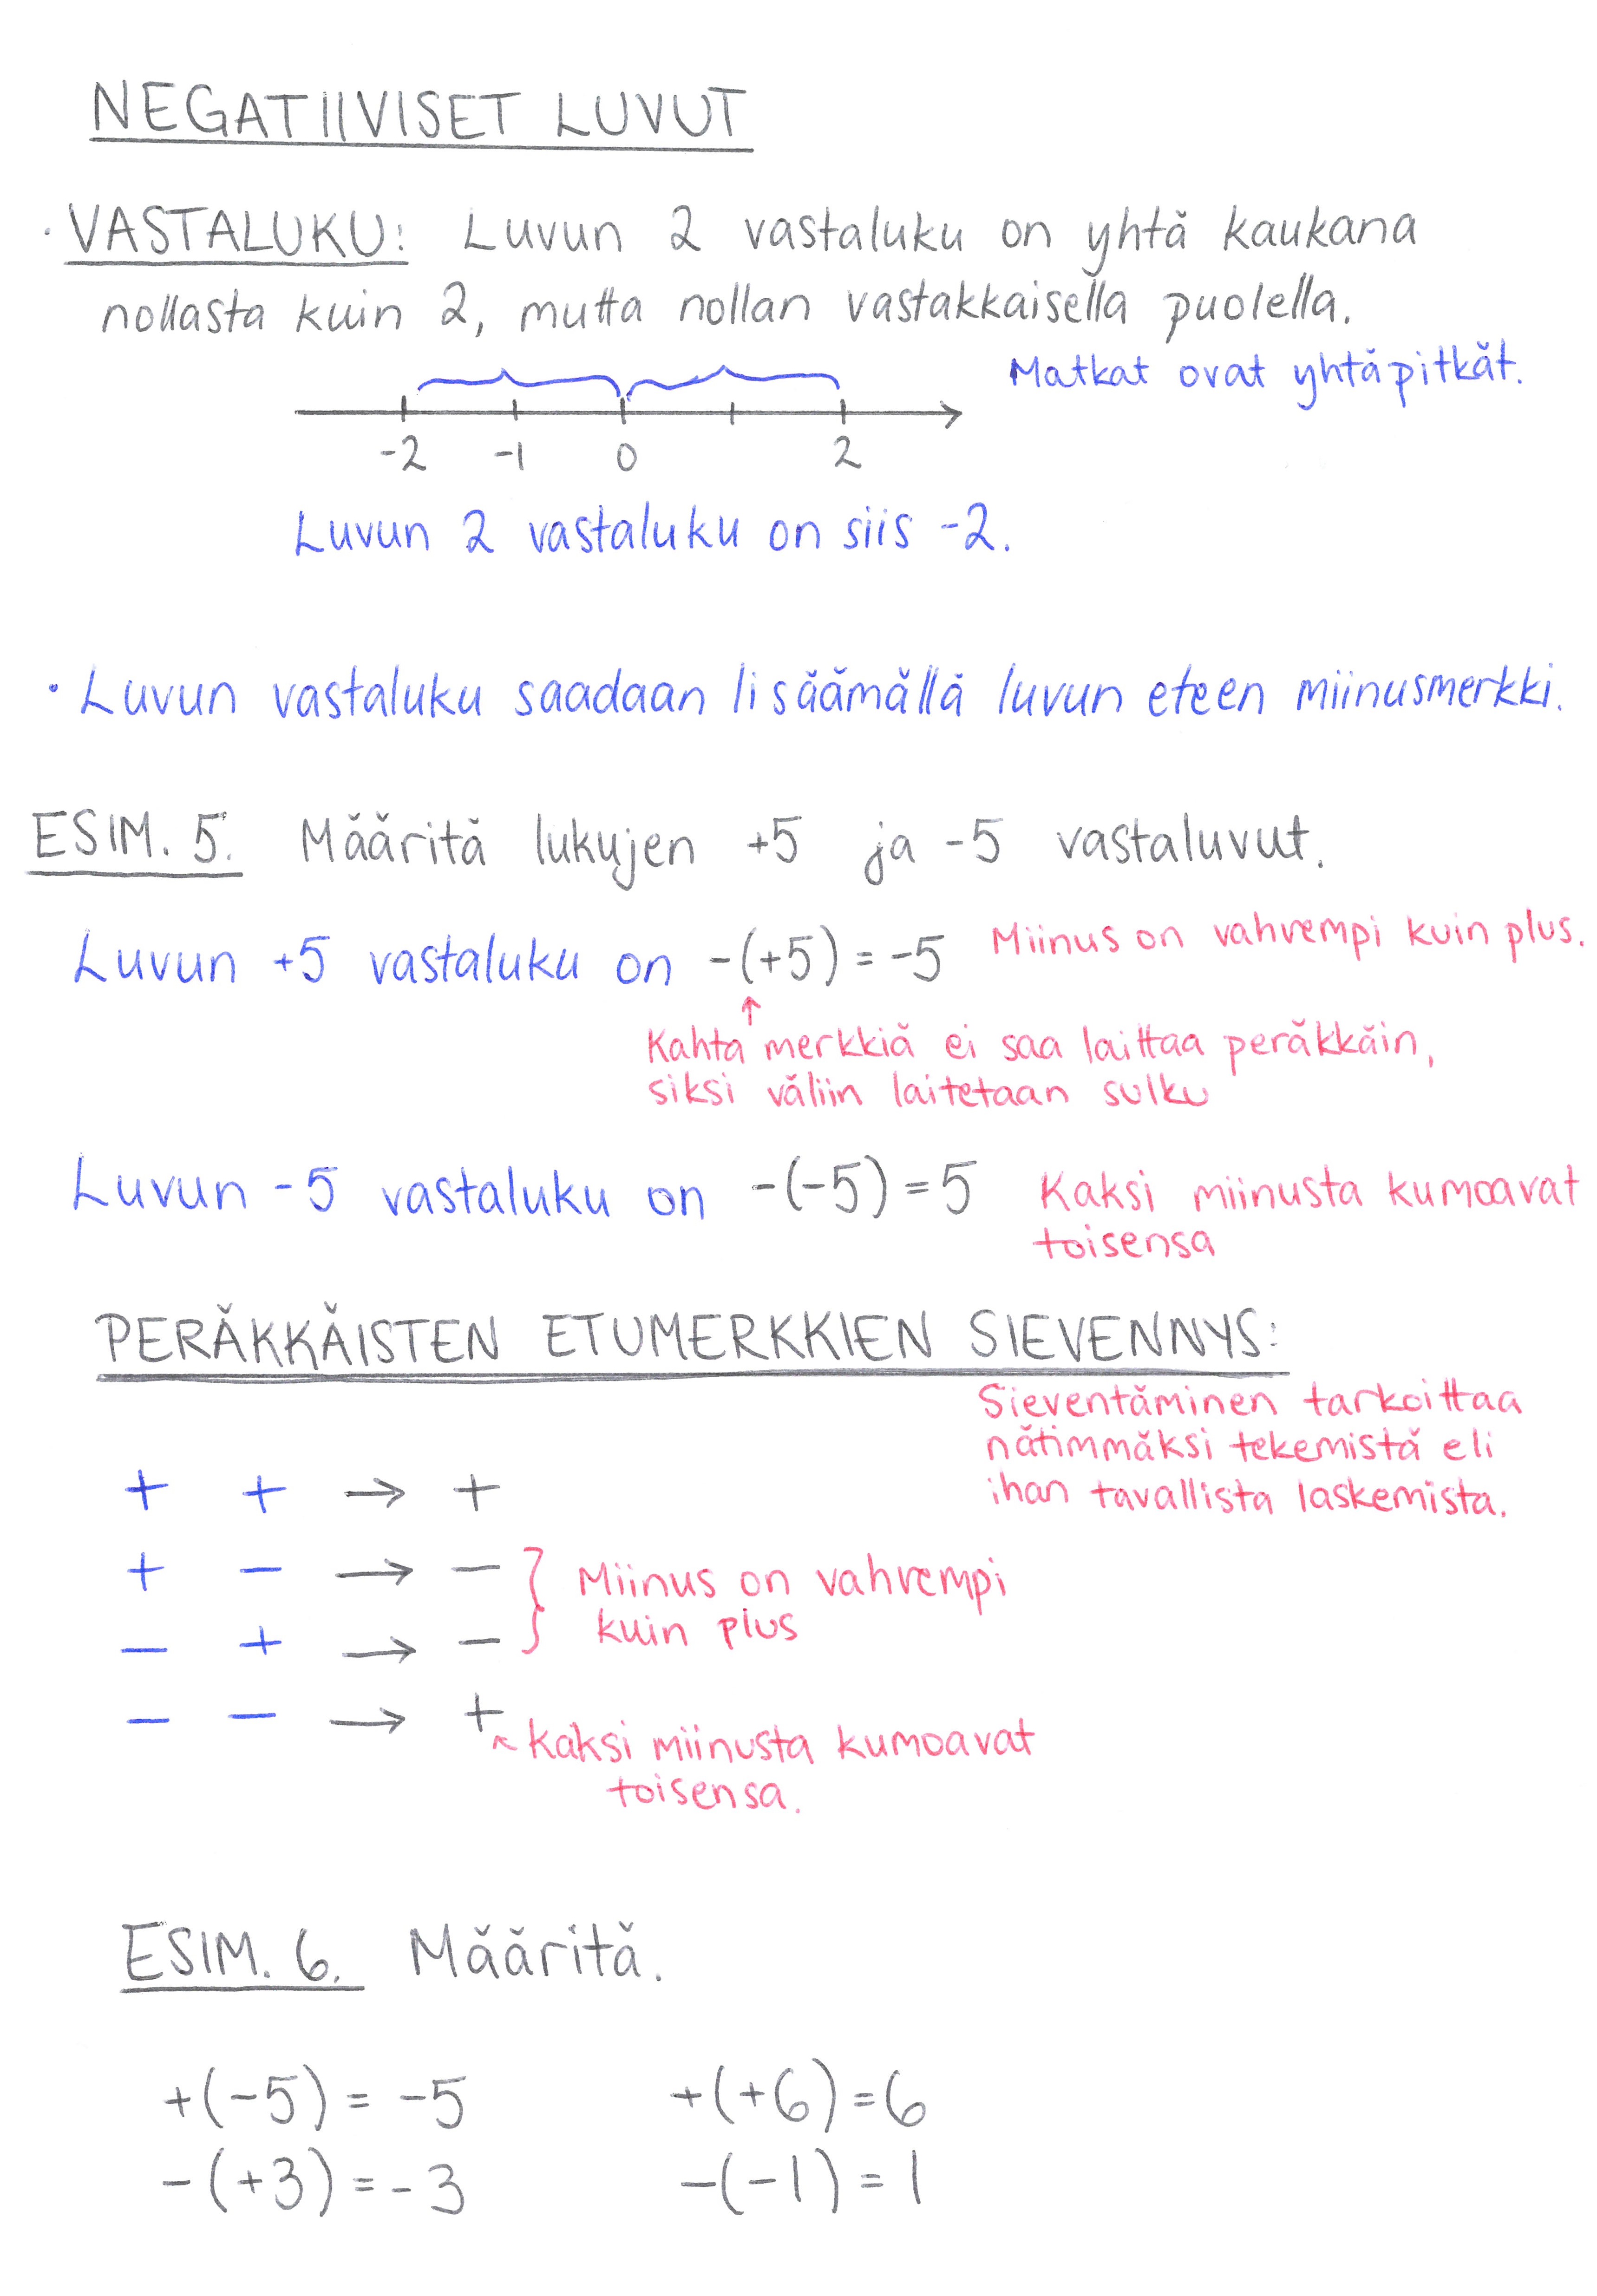 NEGATIIVISET LUVUT
· VASTALUKU: Luvun 2 vastaluku on yhtä kaukana
nollasta kuin 2, mutta nollan vastakkaisella puolella.
Matkat ovat yhtäpitkät.
-2 -1 0 2
Luvun 2 vastaluku on siis -2.
· Luvun vastaluku saadaan lisäämällä luvun eteen miinusmerkki.
ESIM. 5. Määritä lukujen +5 ja -5 vastaluvut.
Luvun +5 vastaluku on -(+5) = -5 Miinus on vahvempi kuin plus.
↑
Kahta merkkiä ei saa laittaa peräkkäin,
siksi väliin laitetaan sulku
Luvun -5 vastaluku on -(-5) = 5 Kaksi miinusta kumoavat
toisensa
PERÄKKÄISTEN ETUMERKKIEN SIEVENNYS:
Sieventäminen tarkoittaa
nätimmäksi tekemistä eli
ihan tavallista laskemista.
+ + → +
+ - → -
Miinus on vahvempi
kuin plus
- + → -
- - → +
Kaksi miinusta kumoavat
toisensa.
ESIM. 6. Määritä.
+(-5) = -5 +(+6) = 6
-(+3) = -3 -(-1) = 1